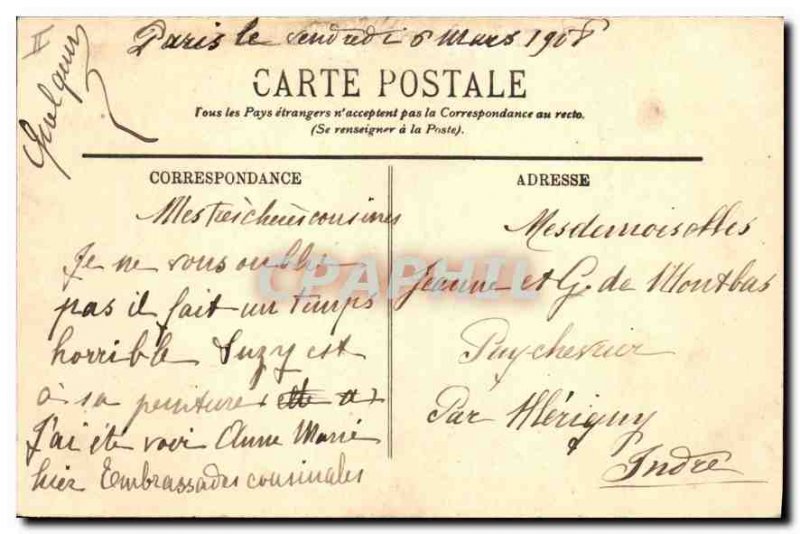 II
Paris le vendredi 6 Mars 1908
CARTE POSTALE
Tous les Pays étrangers n'acceptent pas la Correspondance au recto.
(Se renseigner à la Poste).
CORRESPONDANCE
Mes très chères cousines
Je ne vous oublie
pas il fait un temps
horrible Suzy est
à sa peinture
J'ai été voir Anne Marie
hier Embrassades cousinales
ADRESSE
Mesdemoiselles
Jeanne et G. de Montbas
Puychevrier
Par Mérigny
Indre
CPAPHIL